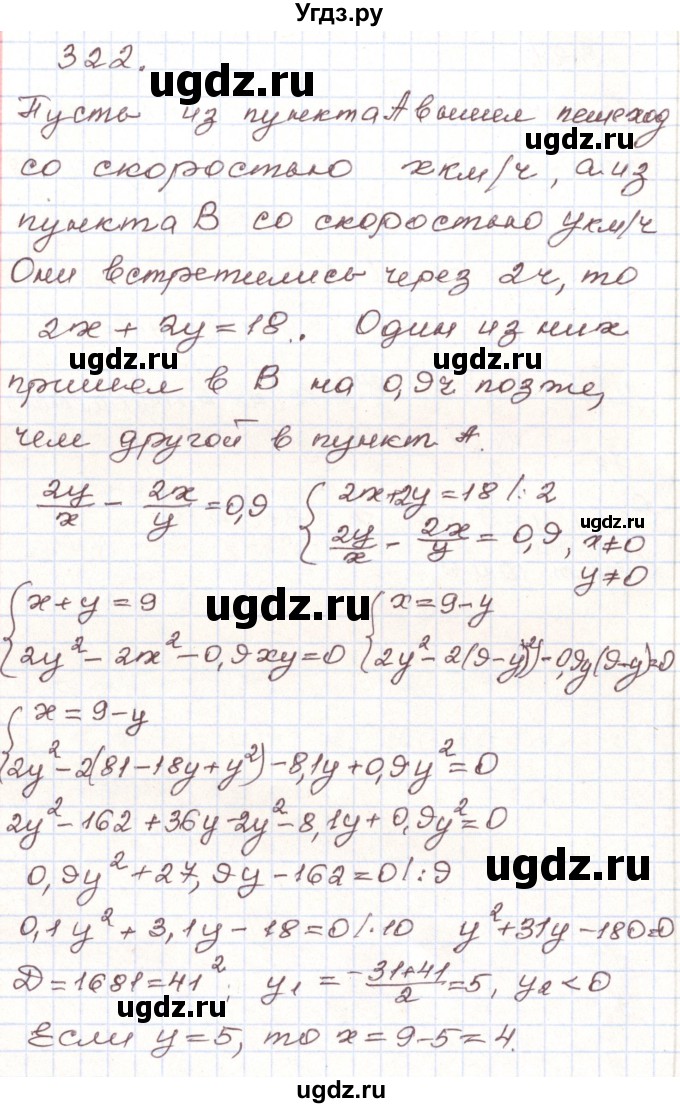 Угдз.ру
322.
ugdz.ru
Пусть из пункта А вышел пешеход
ugdz.ru
со скоростью x км/ч, а из
пункта В со скоростью y км/ч
Они встретились через 2ч, то
2x + 2y = 18. Один из них
ugdz.ru ugdz.ru
пришел в В на 0,9ч позже,
чем другой в пункт А.
2y/x - 2x/y = 0,9 { 2x+2y = 18 /:2
ugdz.ru
2y/x - 2x/y = 0,9, x≠0
y≠0
{ x+y = 9 ugdz.ru { x = 9-y
2y² - 2x² - 0,9xy = 0 2y² - 2(9-y)²) - 0,9y(9-y)=0
{ x = 9-y
2y² - 2(81-18y+y²) - 8,1y + 0,9y² = 0
2y² - 162 + 36y - 2y² - 8,1y + 0,9y² = 0
ugdz.ru
0,9y² + 27,9y - 162 = 0 /:9
0,1y² + 3,1y - 18 = 0 /·10 y² + 31y - 180 = 0
D = 1681 = 41²; y₁ = (-31+41)/2 = 5, y₂ < 0
ugdz.ru
Если y = 5, то x = 9-5 = 4.
ugdz.ru